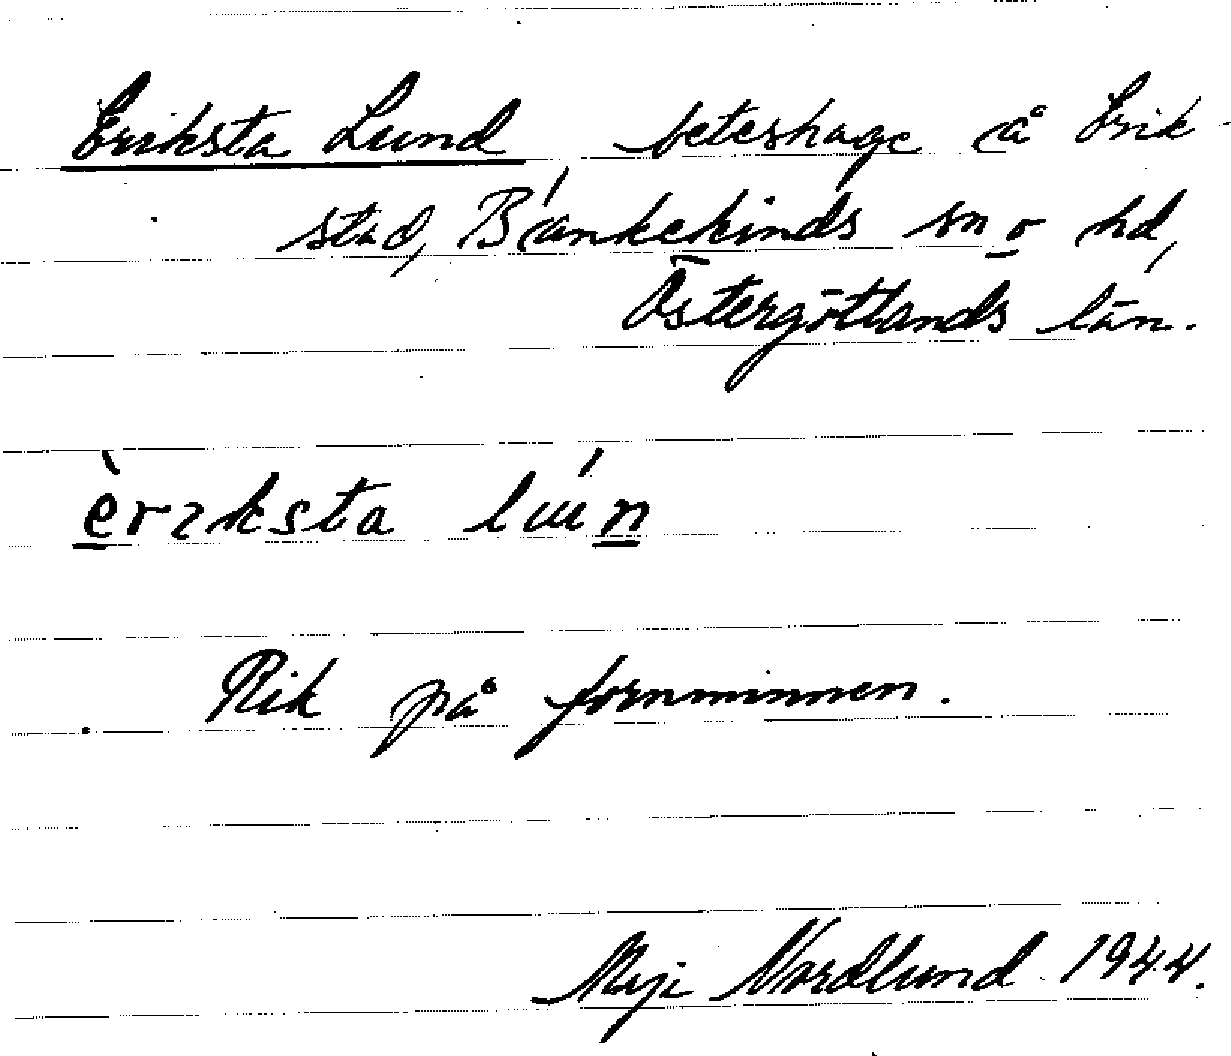 Eriksta Lund, beteshage å Erik-
stad, Bankekinds sn o hd,
Östergötlands län.
èrıksta luún
Rik på fornminnen.
Maji Nordlund 1944.